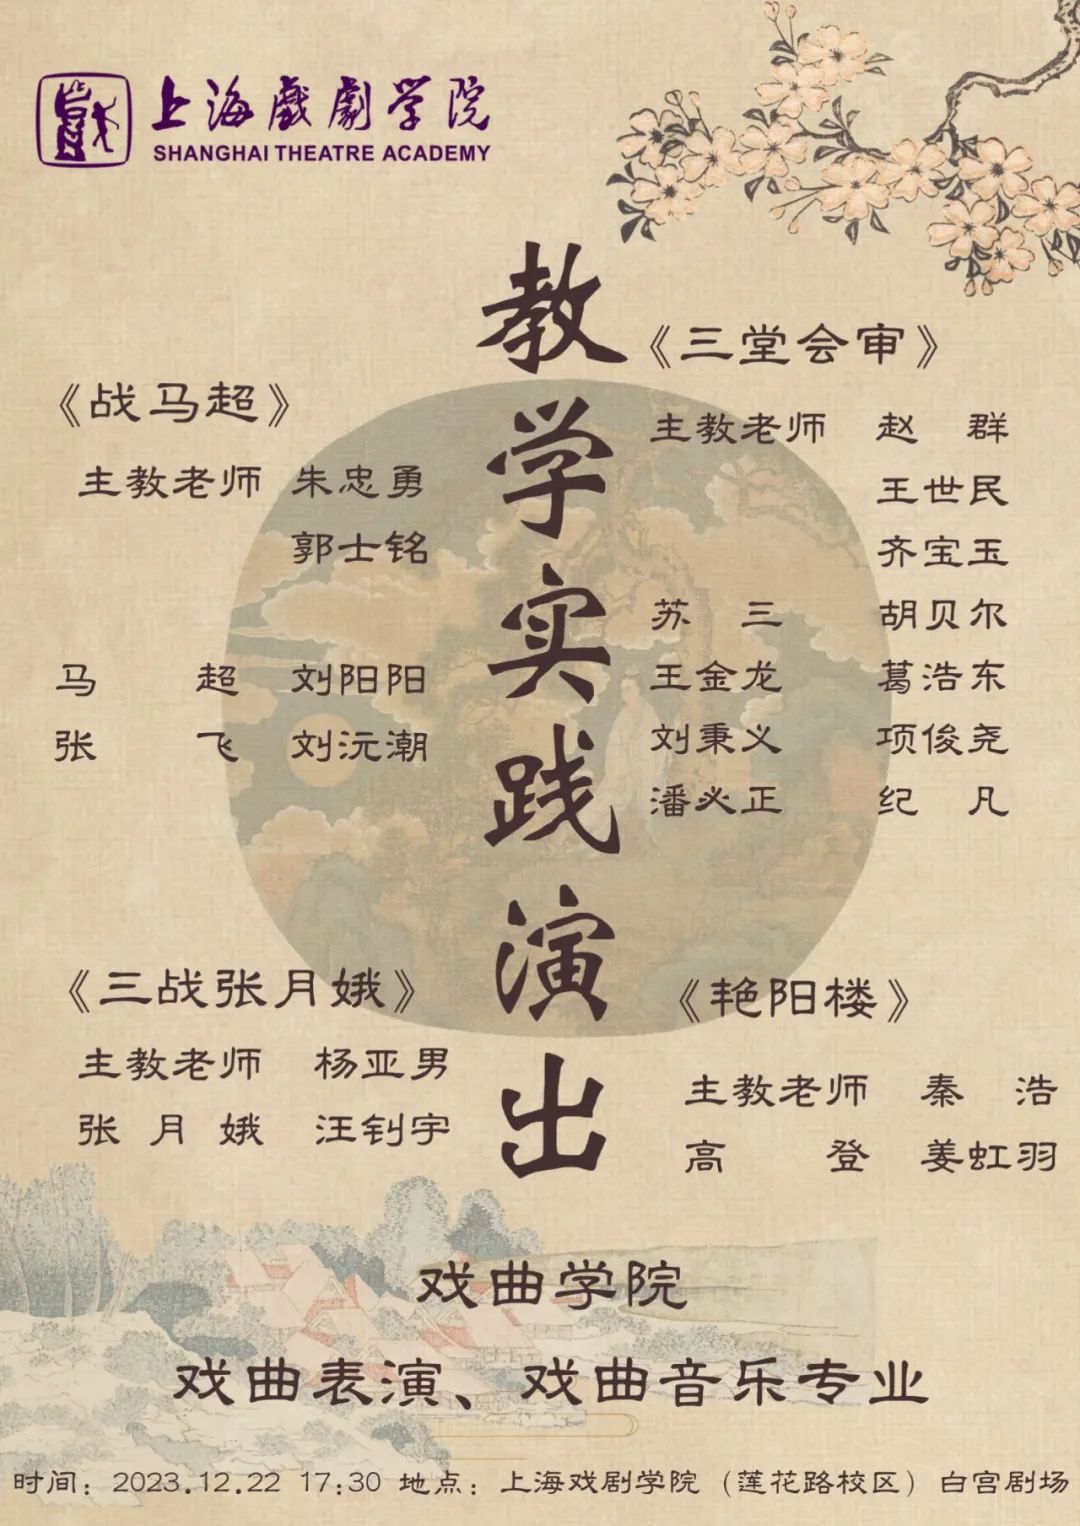 上海戲劇学院
SHANGHAI THEATRE ACADEMY
教学实践演出
《战马超》
主教老师 朱忠勇
郭士铭
马 超 刘阳阳
张 飞 刘沅潮
《三堂会审》
主教老师 赵 群
王世民
齐宝玉
苏 三 胡贝尔
王金龙 葛浩东
刘秉义 项俊尧
潘必正 纪 凡
《三战张月娥》
主教老师 杨亚男
张月娥 汪钊宇
《艳阳楼》
主教老师 秦 浩
高 登 姜虹羽
戏曲学院
戏曲表演、戏曲音乐专业
时间：2023.12.22 17:30 地点：上海戏剧学院（莲花路校区）白宫剧场